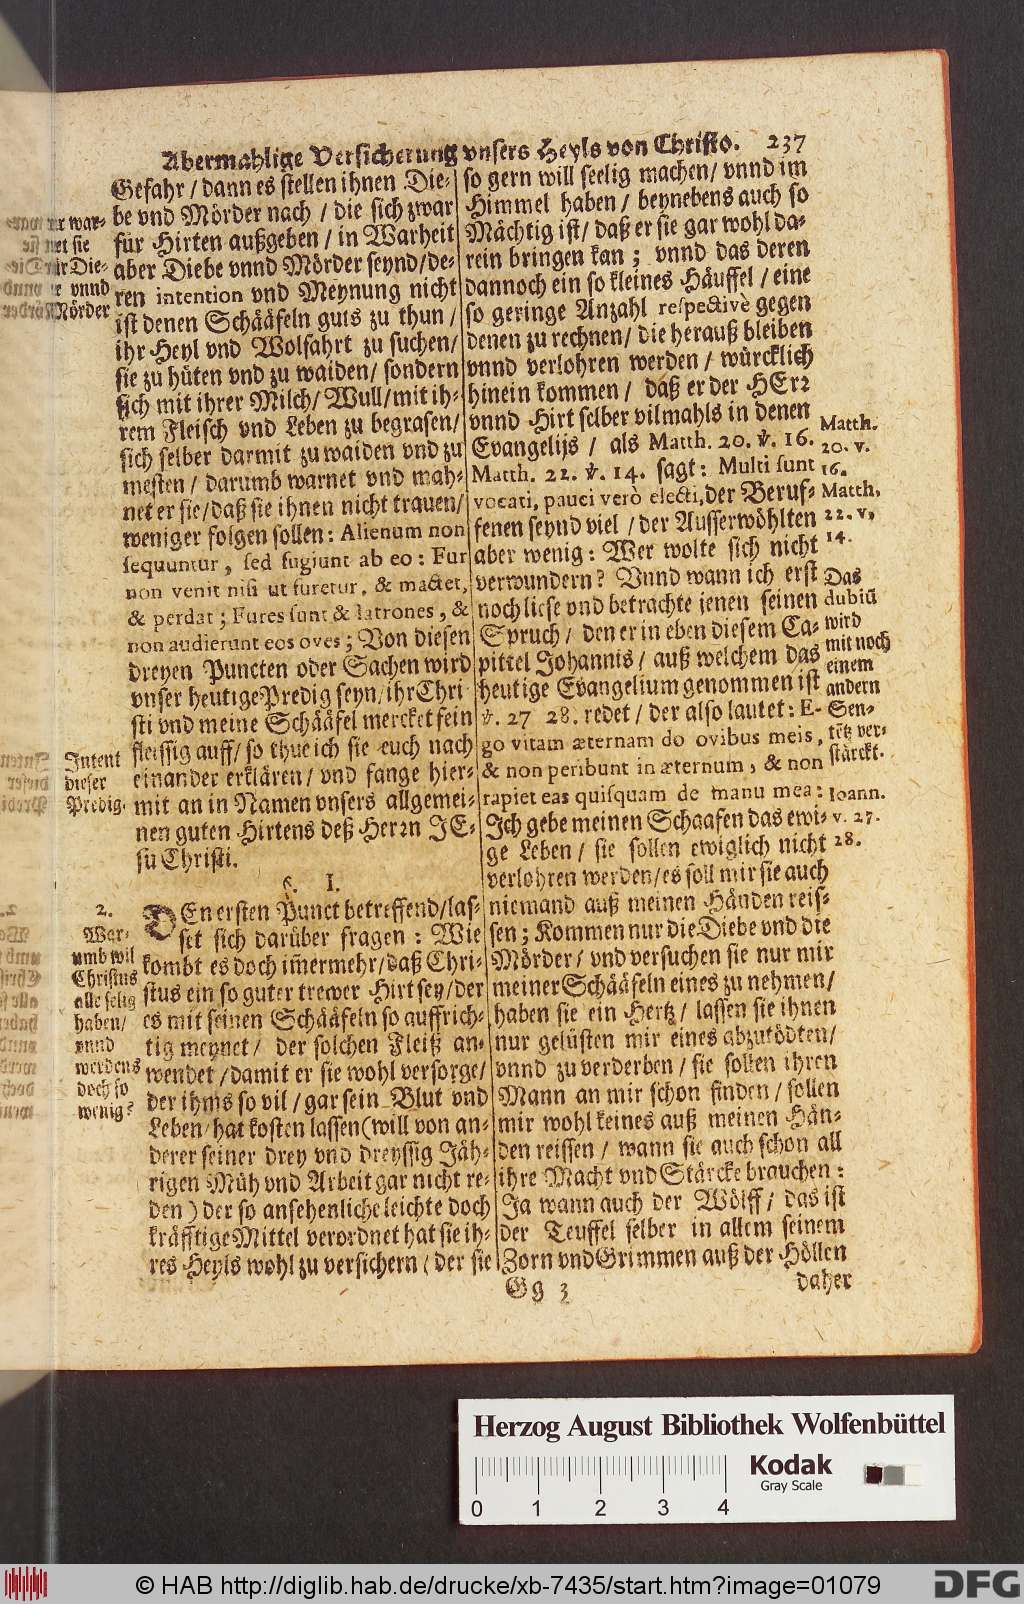 Abermahlige Versicherung vnsers Heyls von Christo. 237
Gefahr / dann es stellen ihnen Die-
be vnd Mörder nach / die sich zwar
für Hirten außgeben / in Warheit
aber Diebe vnnd Mörder seynd / de-
ren intention vnd Meynung nicht
ist denen Schääfeln guts zu thun /
ihr Heyl vnd Wolfahrt zu suchen /
sie zu hüten vnd zu waiden / sondern
sich mit ihrer Milch / Wull / mit ih-
rem Fleisch vnd Leben zu begrasen /
sich selber darmit zu waiden vnd zu
mesten / darumb warnet vnd mah-
net er sie / daß sie ihnen nicht trauen /
weniger folgen sollen : Alienum non
sequuntur, sed fugiunt ab eo : Fur
non venit nisi ut furetur, & mactet,
& perdat ; Fures sunt & latrones, &
non audierunt eos oves ; Von diesen
dreyen Puncten oder Sachen wird
vnser heutige Predig seyn / ihr Chri
sti vnd meine Schääfel mercket fein
fleissig auff / so thue ich sie euch nach
einander erklären / vnd fange hier-
mit an in Namen vnsers allgemei-
nen guten Hirtens deß Herrn JE-
su Christi.
§. I.
DEn ersten Punct betreffend / las-
set sich darüber fragen : Wie
kombt es doch im̃ermehr / daß Chri-
stus ein so guter trewer Hirt sey / der
es mit seinen Schääfeln so auffrich-
tig meynet / der solchen Fleiß an-
wendet / damit er sie wohl versorge /
der ihms so vil / gar sein Blut vnd
Leben / hat kosten lassen ( will von an-
derer seiner drey vnd dreyssig Jäh-
rigen Müh vnd Arbeit gar nicht re-
den ) der so ansehenliche leichte doch
kräfftige Mittel verordnet hat sie ih-
res Heyls wohl zu versichern / der sie
war-
net sie
für Die-
vnnd
Mörder
Intent
dieser
Predig.
2.
War-
umb wil
Christus
alle selig
haben /
vnnd
werdens
doch so
wenig ?
so gern will seelig machen / vnnd im
Himmel haben / beynebens auch so
Mächtig ist / daß er sie gar wohl da-
rein bringen kan ; vnnd das deren
dannoch ein so kleines Häuffel / eine
so geringe Anzahl respectivè gegen
denen zu rechnen / die herauß bleiben
vnnd verlohren werden / würcklich
hinein kommen / daß er der HErr
vnnd Hirt selber vilmahls in denen
Evangelijs / als Matth. 20. ℣. 16.
Matth. 22. ℣. 14. sagt : Multi sunt
vocati, pauci verò electi, der Beruf-
fenen seynd viel / der Ausserwöhlten
aber wenig : Wer wolte sich nicht
verwundern ? Vnnd wann ich erst
noch liese vnd betrachte jenen seinen
Spruch / den er in eben diesem Ca-
pittel Johannis / auß welchem das
heutige Evangelium genommen ist
℣. 27 28. redet / der also lautet : E-
go vitam æternam do ovibus meis,
& non peribunt in æternum, & non
rapiet eas quisquam de manu mea :
Ich gebe meinen Schaafen das ewi-
ge Leben / sie sollen ewiglich nicht
verlohren werden / es soll mir sie auch
niemand auß meinen Händen reis-
sen ; Kommen nur die Diebe vnd die
Mörder / vnd versuchen sie nur mir
meiner Schääfeln eines zu nehmen /
haben sie ein Hertz / lassen sie ihnen
nur gelüsten mir eines abzutödten /
vnnd zu verderben / sie sollen ihren
Mann an mir schon finden / sollen
mir wohl keines auß meinen Hän-
den reissen / wann sie auch schon all
ihre Macht vnd Stärcke brauchen :
Ja wann auch der Wölff / das ist
der Teuffel selber in allem seinem
Zorn vnd Grimmen auß der Höllen
Matth.
20. v.
16.
Matth.
22. v.
14.
Das
dubiũ
wird
mit noch
einem
andern
Sen-
tẽtz ver-
stärckt.
Ioann.
v. 27.
28.
Gg 3
daher
Herzog August Bibliothek Wolfenbüttel
Kodak
Gray Scale
0 1 2 3 4
© HAB http://diglib.hab.de/drucke/xb-7435/start.htm?image=01079
DFG